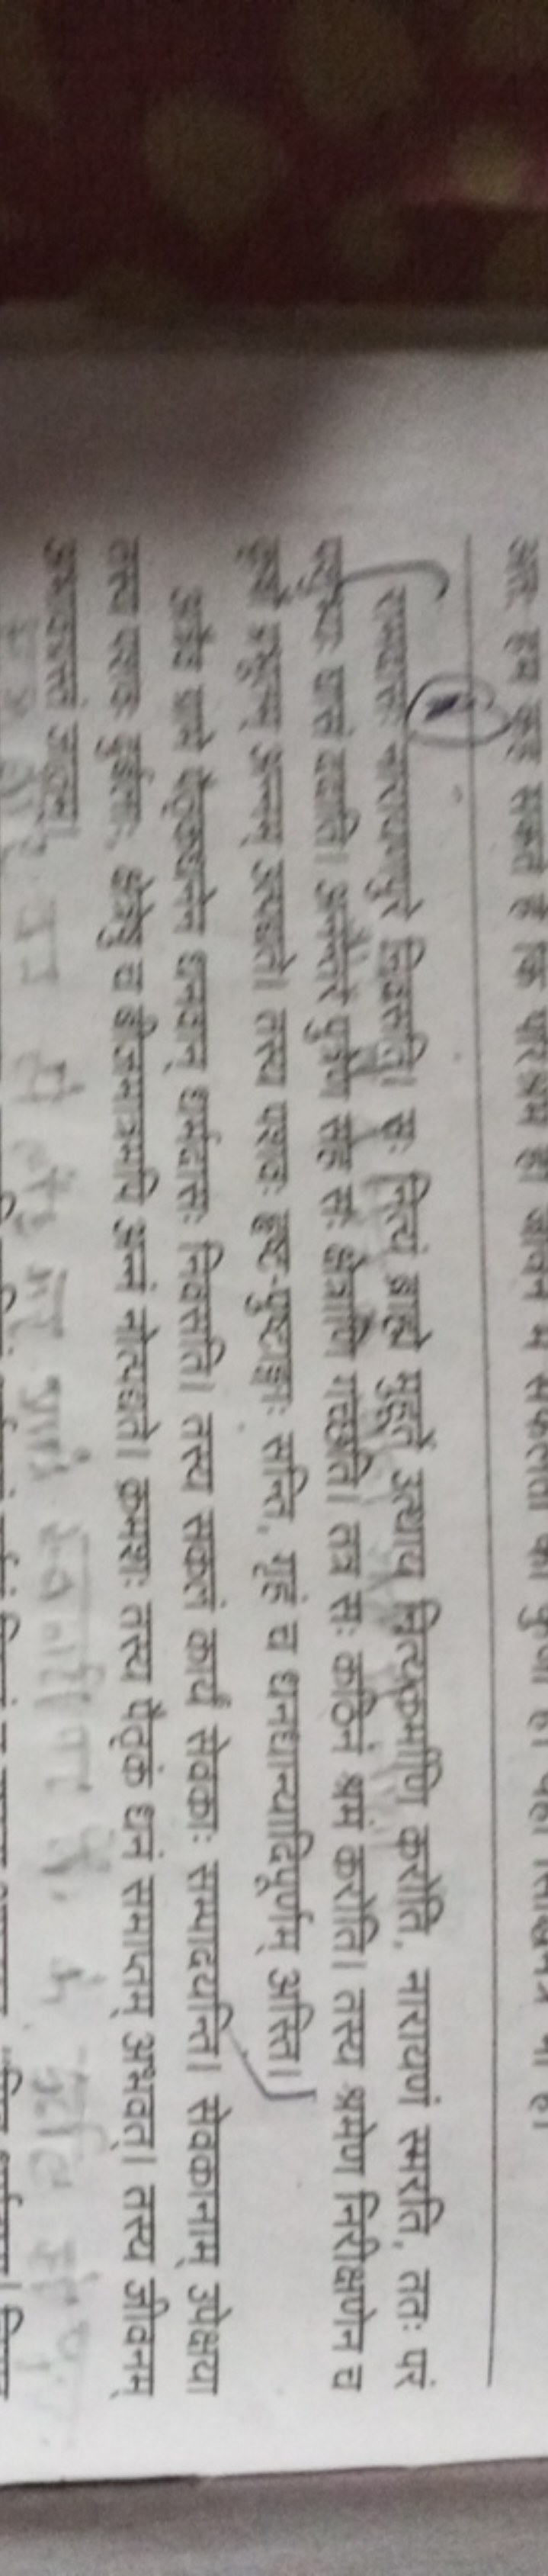 अतः हम कह सकते हैं कि परिश्रम ही जीवन में सफलता की कुंजी है। यही
रामदासः नारायणपुरे निवसति। सः नित्यं ब्राह्मे मुहूर्ते उत्थाय नित्यकर्माणि करोति, नारायणं स्मरति, ततः परं
पशुभ्यः घासं ददाति। अनन्तरं पुत्रेण सह सः क्षेत्राणि गच्छति। तत्र सः कठिनं श्रमं करोति। तस्य श्रमेण निरीक्षणेन च
कृषौ प्रभूतम् अन्नम् उत्पद्यते। तस्य पशवः हृष्ट-पुष्टाङ्गाः सन्ति, गृहं च धनधान्यादिपूर्णम् अस्ति।
अत्रैव ग्रामे पैतृकधनेन धनवान् धर्मदासः निवसति। तस्य सकलं कार्यं सेवकाः सम्पादयन्ति। सेवकानाम् उपेक्षया
तस्य पशवः दुर्बलाः, क्षेत्रेषु च बीजमात्रमपि अन्नं नोत्पद्यते। क्रमशः तस्य पैतृकं धनं समाप्तम् अभवत्। तस्य जीवनम्
अभावग्रस्तं जातम्।